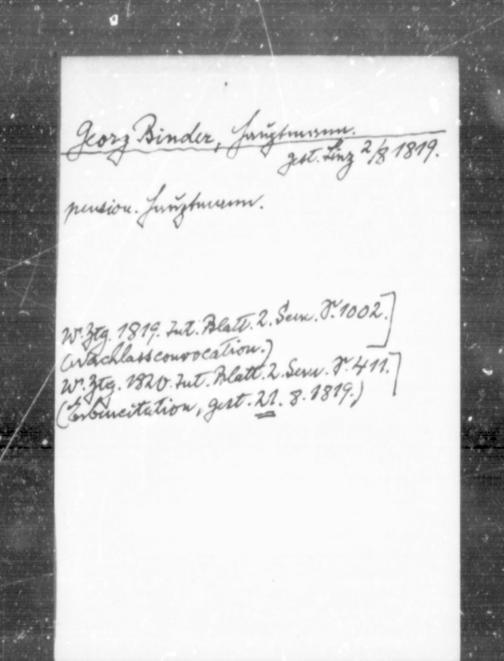 Georg Binder, Hauptmann.
gest. Linz 2/8 1819.
pension. Hauptmann.
W. Ztg. 1819. Int. Blatt. 2. Sem. S. 1002.
(Nachlassconvocation.)
W. Ztg. 1820. Int. Blatt. 2. Sem. S. 411.
(Erbincitation, gest. 21. 8. 1819.)